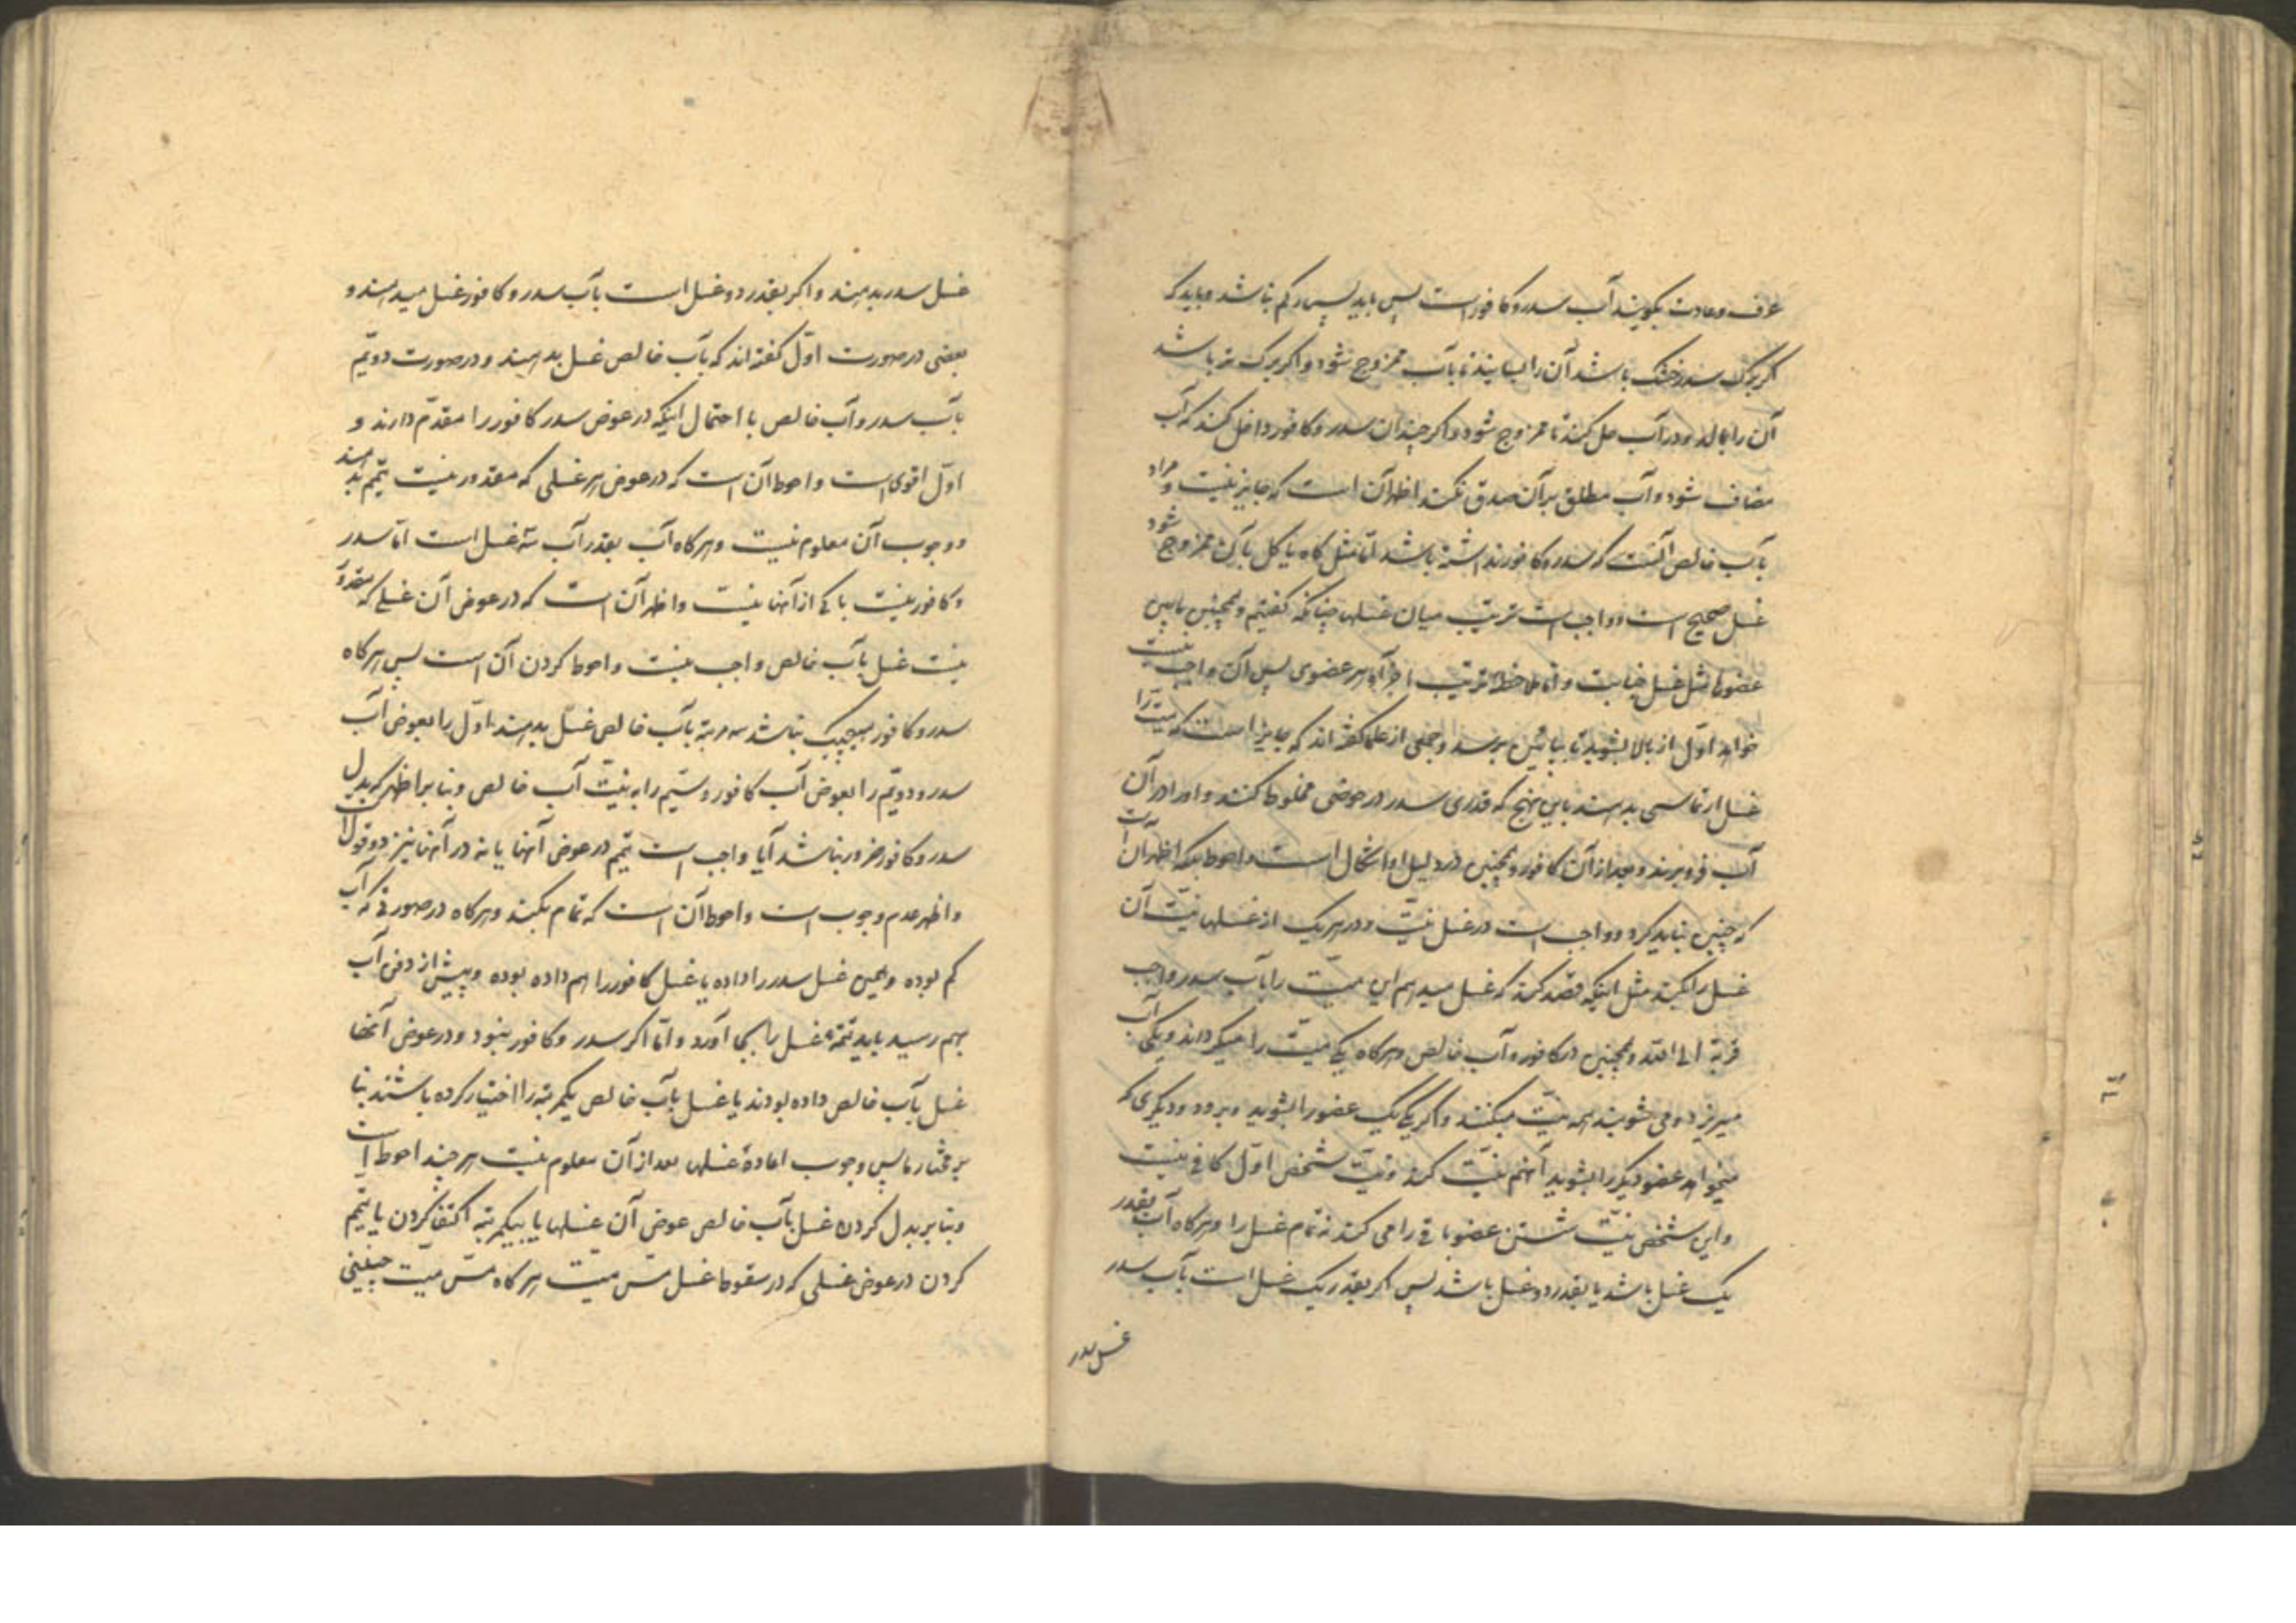 عرف و عادت بگویند آب سدر و کافور است پس باید بسیار کم نباشد و باید که
اگر برک سدر خشک باشد آن را بسایند تا بآب ممزوج شود و اکر برک تر باشد
آن را بمالد و در آب حل کنند تا ممزوج شود و اکر چندان سدر و کافور داخل کنند که آب
مضاف شود و آب مطلق بر آن صدق نکند اظهر آن است که جایز نیست و مراد
بآب خالص آنست که سدر و کافور نداشته باشد امّا مثل کاه یا کل با آن ممزوج شود
غسل صحیح است و واجب است ترتیب میان غسلها چنانکه کفتیم و همچنین مابین
عضوها مثل غسل جنابت و امّا ملاحظه ترتیب اجزآء هر عضوی پس آن واجب نیست
خواهد اوّل از بالا بشوید تا بپائین برسد و جمعی از علما کفته اند که جایز است که میّت را
غسل ارتماسی بدهند باین نهج که قدری سدر در حوضی مخلوط کنند و او را در آن
آب فرو برند و بعد از آن کافور و همچنین در دلیل او اشکال است و احوط بلکه اظهر آن است
که چنین نباید کرد و واجب است در غسل نیّت و در هر یک از غسلها نیّت آن
غسل را کنند مثل اینکه قصد کند که غسل میدهم این میّت را بآب سدر واجب
قربة الی الله و همچنین در کافور و آب خالص و هرکاه یکی میّت را میکرداند و یکی آب
میریزد و می شویند همه نیّت میکنند و اکر یکی یک عضو را بشوید و برود و دیکری که
میخواهد عضو دیکر را بشوید آنهم نیّت کند و نیّت شخص اوّل کافی نیست
و این شخص نیّت شستن عضو باقی را می کند نه تمام غسل را و هرکاه آب بقدر
یک غسل باشد یا بقدر دو غسل باشد پس اکر بقدر یک غسل است بآب سدر
غسل سدر
غسل سدر بدهند و اکر بقدر دو غسل است بآب سدر و کافور غسل میدهند و
بعضی در صورت اوّل کفته اند که بآب خالص غسل بدهند و در صورت دویّم
بآب سدر و آب خالص با احتمال اینکه در عوض سدر کافور را مقدّم دارند و
اوّل اقوی است و احوط آن است که در عوض هر غسلی که مقدور نیست تیمّم بدهند
و وجوب آن معلوم نیست و هرکاه آب بقدر آب سه غسل است امّا سدر
و کافور نیست یا یکی از آنها نیست و اظهر آن است که در عوض آن غسلی که مقدور
نیست غسل بآب خالص واجب نیست و احوط کردن آن است پس هرکاه
سدر و کافور هیچیک نباشد سه مرتبه بآب خالص غسل بدهند اوّل را بعوض آب
سدر و دویّم را بعوض آب کافور و سیّم را به نیّت آب خالص و بنا بر اظهر که بدل
سدر و کافور ضرور نباشد آیا واجب است تیمّم در عوض آنها یا نه در آنها نیز دو قول است
و اظهر عدم وجوب است و احوط آن است که تمام بکنند و هرکاه در صورتی که آب
کم بوده و همین غسل سدر را داده یا غسل کافور را هم داده بوده و پیش از دفن آب
بهم رسید باید تتمّه غسل را بجا آورد و امّا اکر سدر و کافور نبود و در عوض آنها
غسل بآب خالص داده بودند یا غسل بآب خالص یکمرتبه را اختیار کرده باشند بنا
بر مختار ما پس وجوب اعاده غسلها بعد از آن معلوم نیست هر چند احوط است
و بنا بر بدل کردن غسل بآب خالص عوض آن غسلها یا بیکمرتبه اکتفا کردن یا تیمّم
کردن در عوض غسلی که در سقوط غسل مسّ میّت هرکاه مسّ میّت چنینی